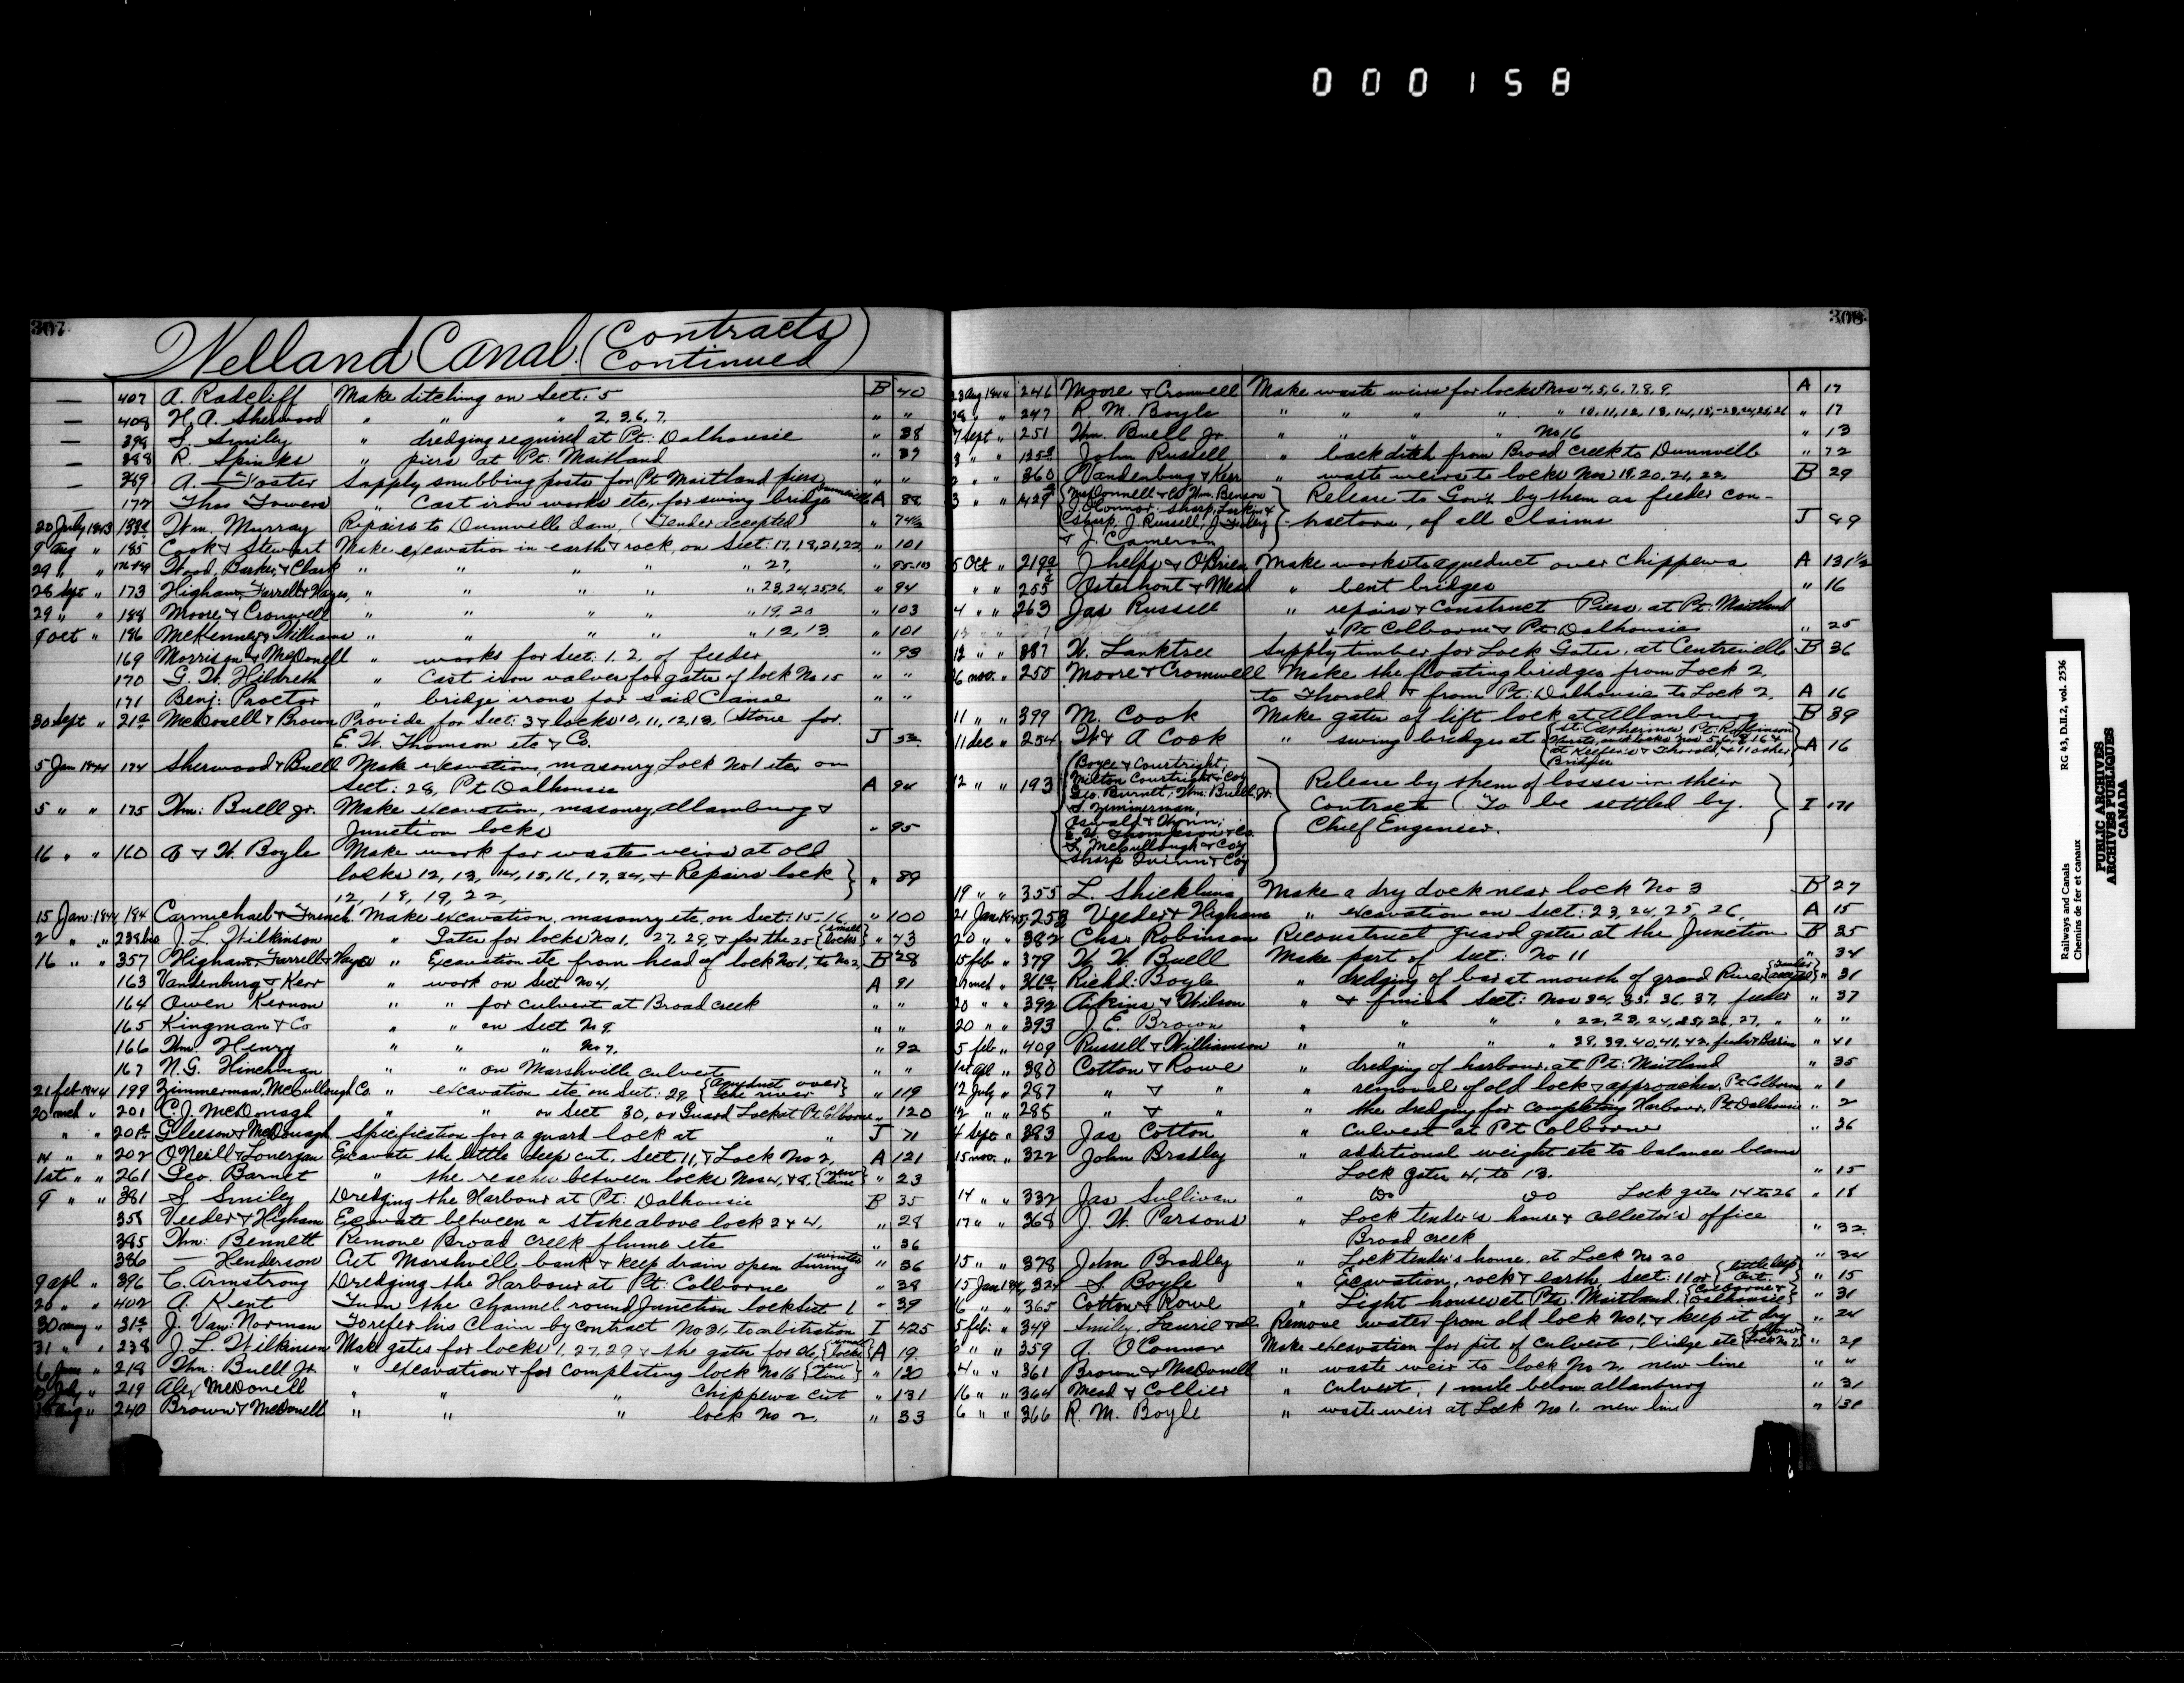 000158
307
Welland Canal. (Contracts Continued)
— 407 A. Radcliff Make ditching on Sect: 5 B 40
— 408 H. A. Sherwood " " " 2, 3, 6, 7, " "
— 398 S. Smiley " dredging required at Pt: Dalhousie " 38
— 388 R. Spinks " piers at Pt: Maitland " 37
— 369 A. Foster Supply snubbing posts for Pt Maitland piers " "
172 Thos Towers " Cast iron works etc, for swing bridge Dunnville A 88
20 July 1843 Wm. Murray Repairs to Dunnville dam, (Tender accepted) " 74½
9 Aug " 185 Cook & Stewart Make excavation in earth & rock, on Sect: 17, 18, 21, 22, " 101
29 " " Wood, Barker, & Clark " " " " " 27, " 95-103
28 Sept " 173 Higham, Farrell & Hayes, " " " " " 23, 24, 25 26, " 94
29 " " 188 Moore & Cromwell " " " " 19, 20 " 103
9 oct " 186 McKenney & Williams " " " " " 12, 13 " 101
169 Morrison & McDonell " works for Sect: 1, 2, of feeder " 93
170 G. W. Hildreth " Cast iron valves for gates of lock No 15 " "
171 Benj: Proctor " bridge irons for said Canal " "
30 Sept " McDonell & Brown Provide for Sect: 3 & locks 10, 11, 12, 13, (Stone for
E. W. Thomson etc & Co. J 52
5 Jan 1844 174 Sherwood & Buell Make excavations, masonry, Lock No 1 etc on
Sect: 28, Pt Dalhousie A 94
5 " " 175 Wm: Buell Jr. Make excavation, masonry, allanburg &
Junction locks " 95
16 " " 160 & W. Boyle Make work for waste weirs at old
locks 12, 13, 14, 15, 16, 17, 24, & Repairs lock } " 89
12, 18, 19, 22,
15 Jan: 1844 184 Carmichael & French. Make excavation, masonry etc, on Sect: 15-16 " 100
2 " " 238 bis J. L. Wilkinson " Gates for locks Nos 1, 27, 29, & for the 25 {small locks} " 43
16 " " 357 Higham, Farrell & Hayes " Excavation etc from head of lock No 1, to No 2, B 28
163 Vandenburg & Kerr " work on Sect No 4, A 91
164 Owen Kernon " " for culvert at Broad creek " "
165 Kingman & Co " " on Sect No 9. " "
166 Wm. Henry " " " No 7. " 92
167 N. G. Hinchman " " on Marshville culvert " "
21 feb 1844 199 Zimmerman, McCullough Co. " excavation etc, on Sect: 29, {aqueduct over the river} " 119
20 mch " 201 C. J. McDonagh " " on Sect 30, or Guard Lock at Pt. Colborne " 120
" " Gleeson & McDonagh Specification for a guard lock at " J 71
14 " " 202 O'Neill & Lonergan Excavate the little deep cut, Sect 11, & Lock No 2, A 121
1st " " 261 Geo. Barnet " the reaches between locks Nos 4, & 8, {new line} " 23
9 " " 381 S. Smiley Dredging the Harbour at Pt: Dalhousie B 35
358 Veeder & Higham Excavate between a stake above lock 2 & 4, " 28
385 Wm: Bennett Remove Broad Creek flume etc " 36
386 — Henderson Cut Marshville, bank & keep drain open during winter " 36
9 apl " 396 C. Armstrong Dredging the Harbour at Pt: Colborne " 38
20 " " 402 A. Kent Turn the channel round Junction lock Sect 1 " 39
30 may " J. Van: Norman To refer his Claim by contract No 31, to arbitration I 425
31 " " 238 J. L. Wilkinson Make gates for locks 1, 27, 29 & the gates for 26, {small locks} A 19
6 June " 218 Wm: Buell Jr " excavation & for completing lock No 16 {new line} " 130
July " 219 Alex McDonell " " " Chippewa cut " 131
Aug " 240 Brown & McDonell " " " lock No 2 " 33
308
23 Aug 1844 246 Moore & Cromwell Make waste weirs for locks Nos 4, 5, 6, 7, 8, 9, A 17
28 " " 247 R. M. Boyle " " " " " 10, 11, 12, 13, 14, 15,-23, 24, 25, 26 " 17
7 Sept " 251 Wm. Buell Jr. " " " " No 16 " 13
John Russell " back ditch from Broad Creek to Dunnville " 72
360 Vandenburg & Kerr " waste weirs to locks Nos 19, 20, 21, 22, B 29
3 " " {McDonnell & Co Wm. Benson
J. O'Connor, Sharp, Larkin &
Sharp, J. Russell, J. Foley
& J. Cameron} Release to Govt by them as feeder con-
tractors, of all Claims J 49
5 Oct " Phelps & O'Brien Make works to aqueduct over Chippewa A 131½
" " Osterhout & Mead " bent bridges " 16
4 " " 263 Jas Russell " repairs & construct Piers at Pt: Maitland
& Pt. Colborne & Pt: Dalhousie " 25
12 " " 387 W. Lanktree Supply timber for Lock Gates, at Centreville B 36
16 nov. " 255 Moore & Cromwell Make the floating bridges from Lock 2,
to Thorold & from Pt: Dalhousie to Lock 2, A 16
11 " " 399 M. Cook Make gates of lift lock at Allanburg B 39
11 dec " 254 W & A Cook " swing bridges at {St. Catherines, Pt: Robinson
locks Nos 5, 6, 8, 16 &
at Keefer's & Thorold, & 11 other
Bridges} A 16
12 " " 193 {Boyce & Courtright,
Milton Courtright & Coy
Geo. Burnet, Wm: Buell Jr.
S. Zimmerman,
Oswald &
E. W. Thompson & Co.
S. McCullough & Coy
Sharp Quinn & Coy} Release by them of losses in their
Contracts (To be settled by.
Chief Engeneer. } I 171
19 " " 355 L. Shickluna Make a dry dock near lock No 3 B 27
21 Jan 1845 Veeder & Higham " excavation on Sect: 23, 24, 25, 26, A 15
20 " " 382 Chas Robinson Reconstruct guard gates at the Junction B 35
15 feb " 379 W. W. Buell Make part of Sect: No 11 " 34
mch " Richd. Boyle " dredging of bar at mouth of grand River {tender accepted} " 31
20 " " 392 Aikins & Wilson " & finish Sect: Nos 34, 35, 36, 37, feeder " 37
20 " " 393 J. E. Brown " " " " 22, 23, 24, 25, 26, 27, " " "
5 feb " 409 Russell & Williamson " " " " 38, 39, 40, 41, 42, feeder & Basin " 41
1st apl " 380 Cotton & Rowe " dredging of harbour, at Pt: Maitland " 35
12 July " 287 " & " " removal of old lock & approaches, Pt Colborne " 1
12 " " 288 " & " " the dredging for completing Harbour, Pt Dalhousie " 2
4 Sept " 383 Jas Cotton " Culvert at Pt Colborne " 36
15 nov. " 322 John Bradley " additional weight etc to balance beams
Lock gates 4, to 13. " 15
14 " " 332 Jas Sullivan " Do Do Lock gates 14 to 26 " 18
17 " " 368 J. W. Parsons " Lock tender's house & collector's office
Broad creek " 32
15 " " 378 John Bradley " Lock tender's house. at Lock No 20 " 34
15 Jan 1846 324 S. Boyle " Excavation, rock & earth, Sect: 11 or {little deep Cut.} " 15
16 " " 365 Cotton & Rowe " Light houses at Pts. Maitland, {Colborne & Dalhousie} " 31
5 feb: " 349 Smiley, Laurie & Remove water from old lock No 1, & keep it dry " 24
" " 359 O'Connor Make excavation for pit of culvert, bridge etc " 29
4 " " 361 Brown & McDonell " waste weir to lock No 2, new line " "
16 " " 364 Mead & Collier " culvert, 1 mile below allanburg " 31
6 " " 366 R. M. Boyle " waste weir at Lock No 1. new line " 30
Railways and Canals RG 43, D.II.2, vol. 2536
Chemins de fer et canaux
PUBLIC ARCHIVES
ARCHIVES PUBLIQUES
CANADA